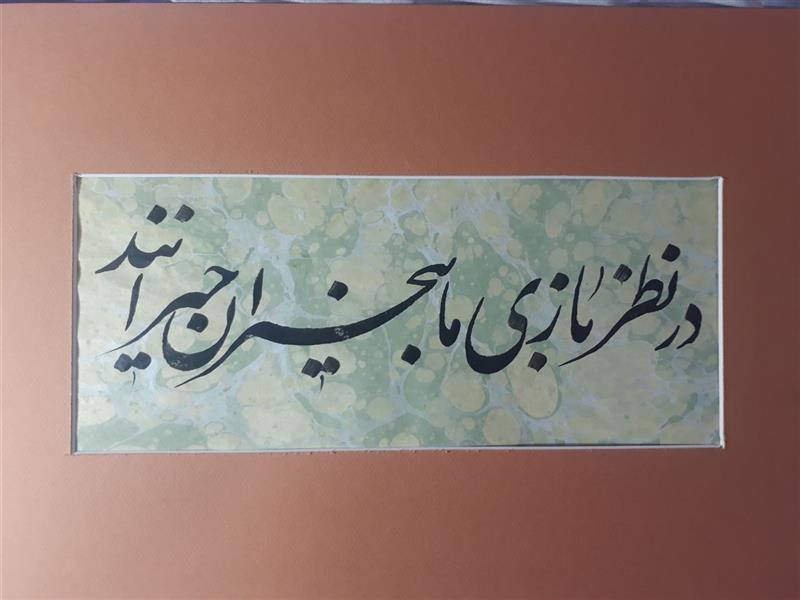 در نظر بازی ما بیخبران حیرانند